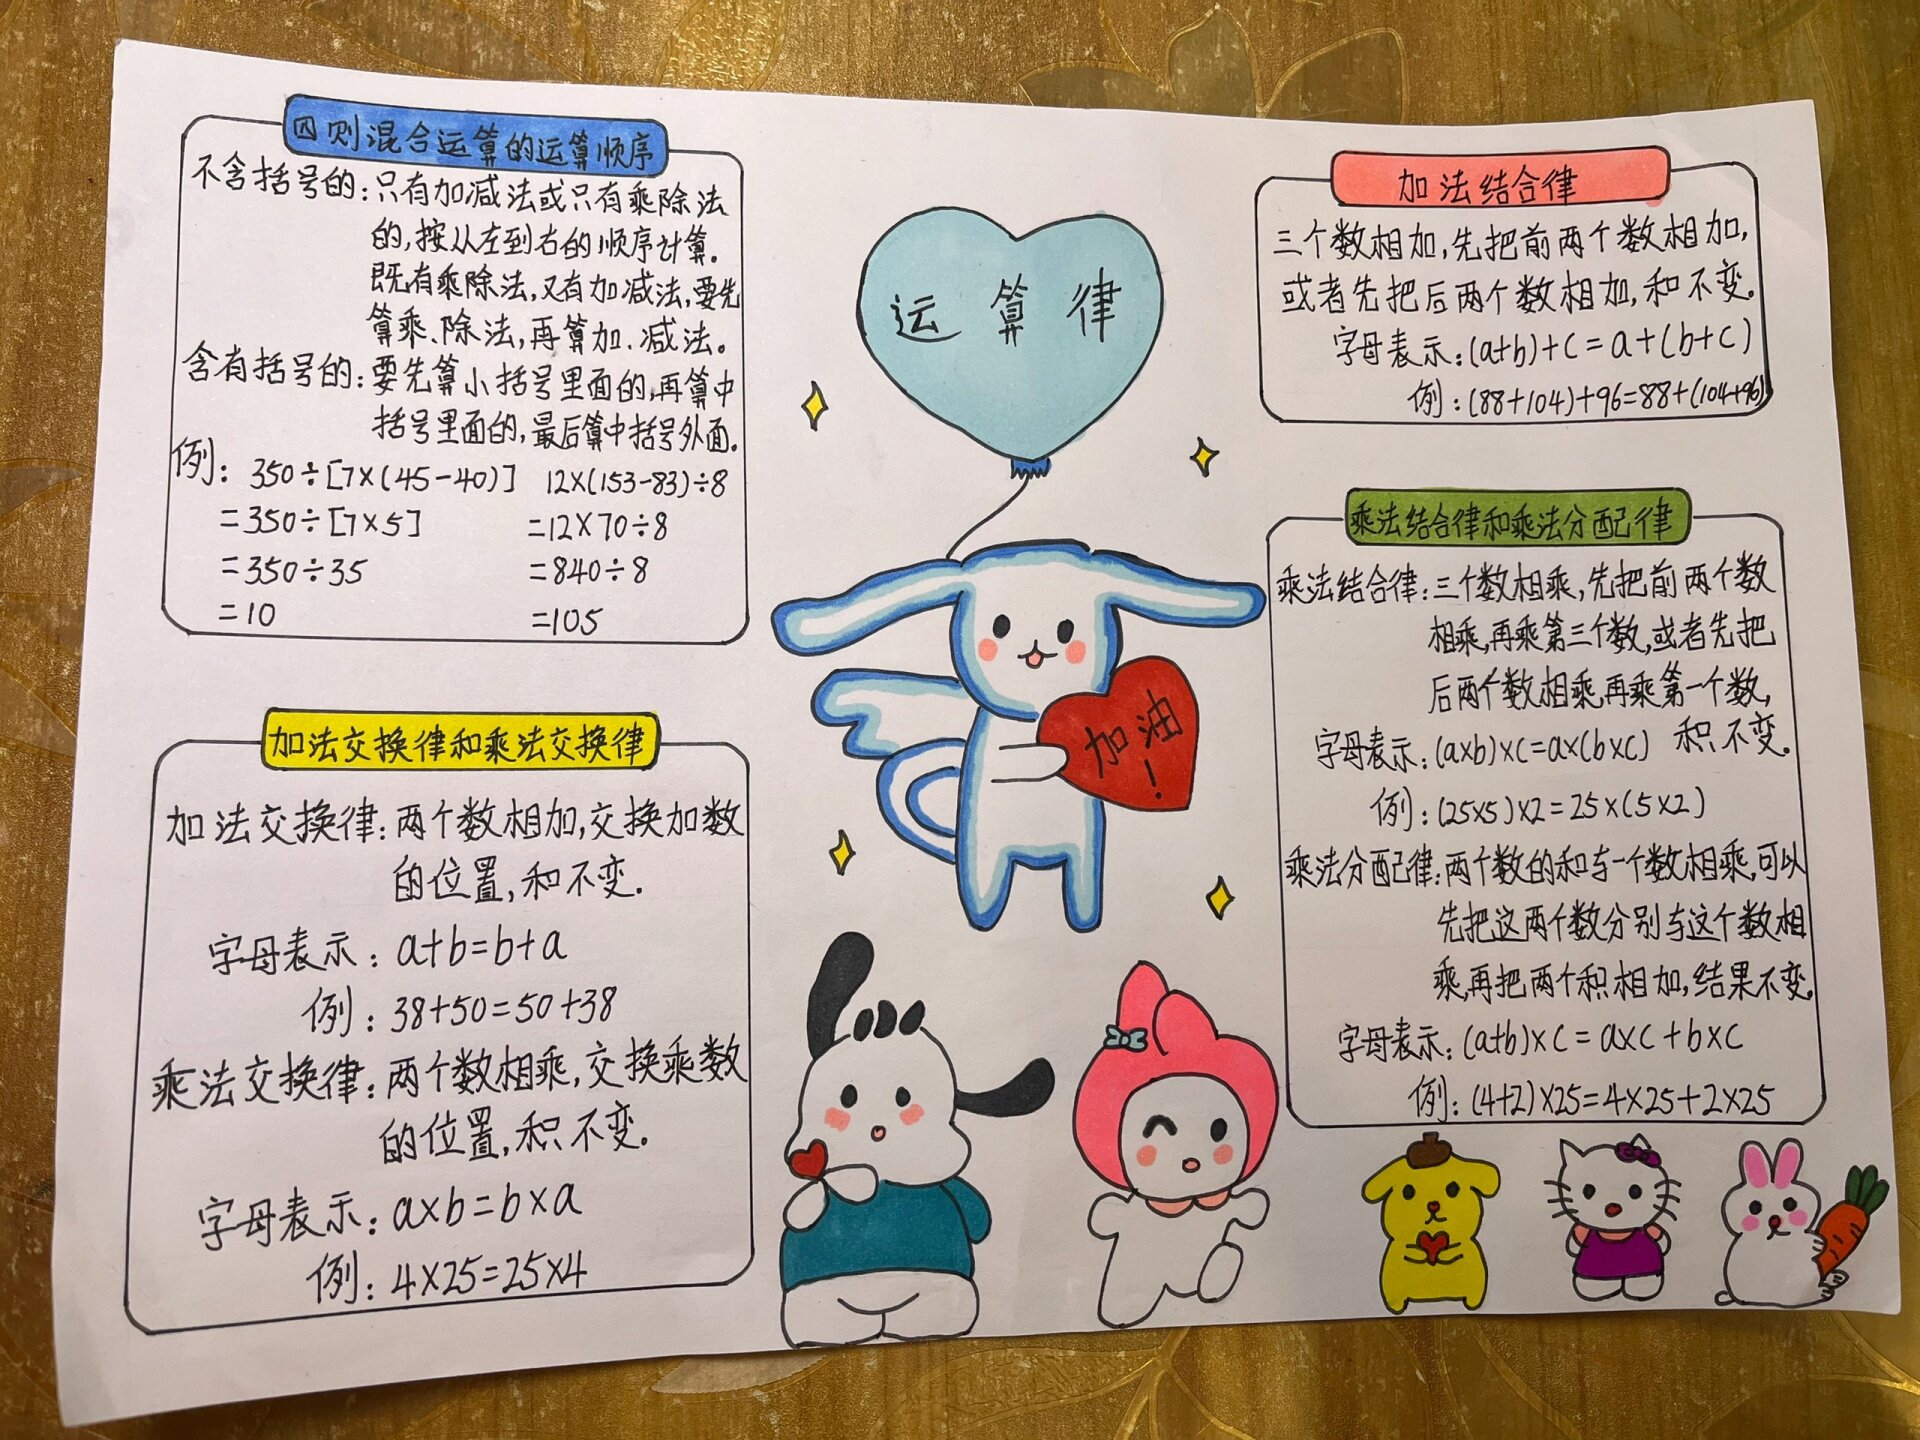 四则混合运算的运算顺序
不含括号的:只有加减法或只有乘除法
的,按从左到右的顺序计算.
既有乘除法,又有加减法,要先
算乘.除法,再算加.减法。
含有括号的:要先算小括号里面的,再算中
括号里面的,最后算中括号外面.
例:350÷[7×(45-40)]
=350÷[7×5]
=350÷35
=10
12×(153-83)÷8
=12×70÷8
=840÷8
=105
加法交换律和乘法交换律
加法交换律:两个数相加,交换加数
的位置,和不变.
字母表示:a+b=b+a
例:38+50=50+38
乘法交换律:两个数相乘,交换乘数
的位置,积不变.
字母表示:a×b=b×a
例:4×25=25×4
运算律
加油
!
加法结合律
三个数相加,先把前两个数相加,
或者先把后两个数相加,和不变.
字母表示:(a+b)+c=a+(b+c)
例:(88+104)+96=88+(104+96)
乘法结合律和乘法分配律
乘法结合律:三个数相乘,先把前两个数
相乘,再乘第三个数,或者先把
后两个数相乘,再乘第一个数,
积不变.
字母表示:(a×b)×c=a×(b×c)
例:(25×5)×2=25×(5×2)
乘法分配律:两个数的和与一个数相乘,可以
先把这两个数分别与这个数相
乘,再把两个积相加,结果不变.
字母表示:(a+b)×c=a×c+b×c
例:(4+2)×25=4×25+2×25